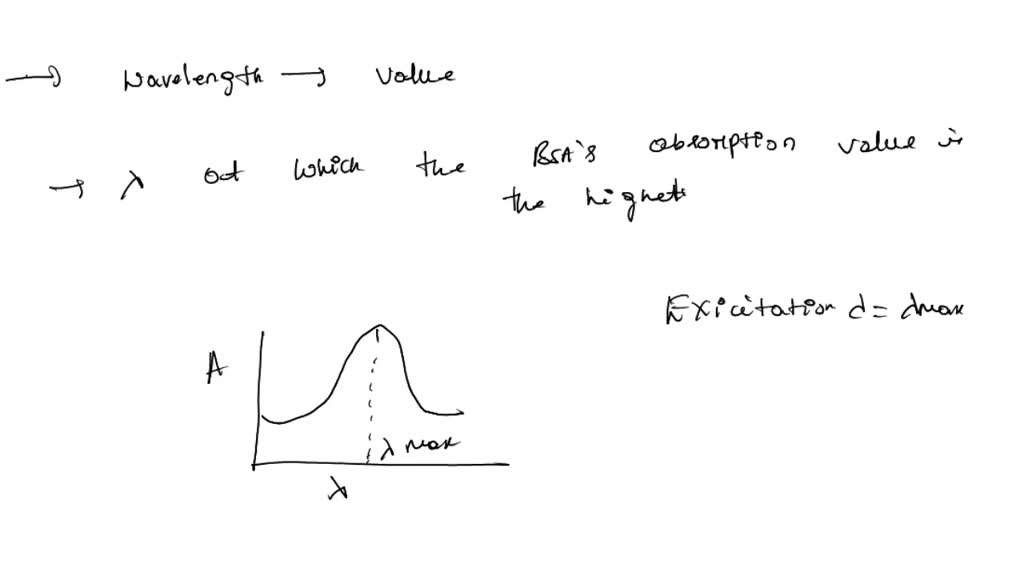 → Wavelength → value
→ λ at which the BSA's absorption value is
the highest
Exicitation d = dmax
A
λ max
λ